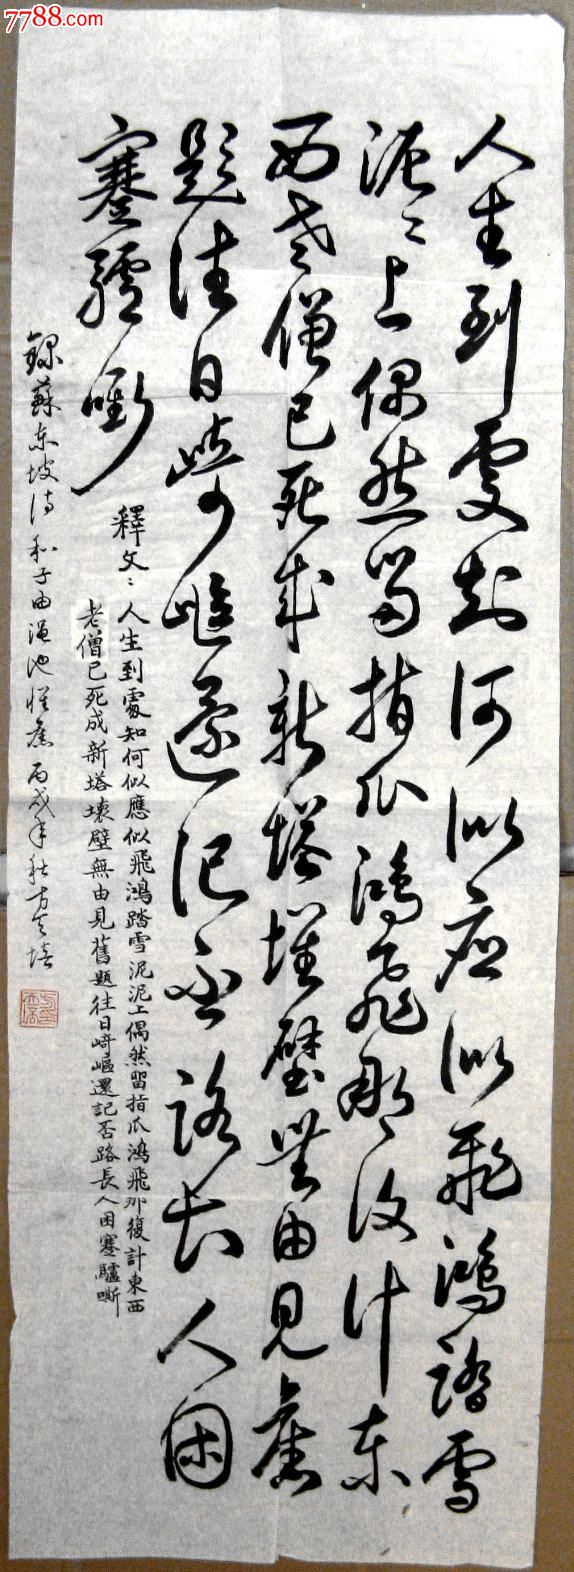 7788.com
人生到處知何似應似飛鴻踏雪
泥〻上偶然留指爪鴻飛那復計東
西老僧已死成新塔壞壁無由見舊
題往日崎嶇還記否路長人困
蹇驢嘶
釋文〻人生到處知何似應似飛鴻踏雪泥泥上偶然留指爪鴻飛那復計東西
老僧已死成新塔壞壁無由見舊題往日崎嶇還記否路長人困蹇驢嘶
錄蘇东坡诗和子由渑池怀舊丙戌年秋方天培